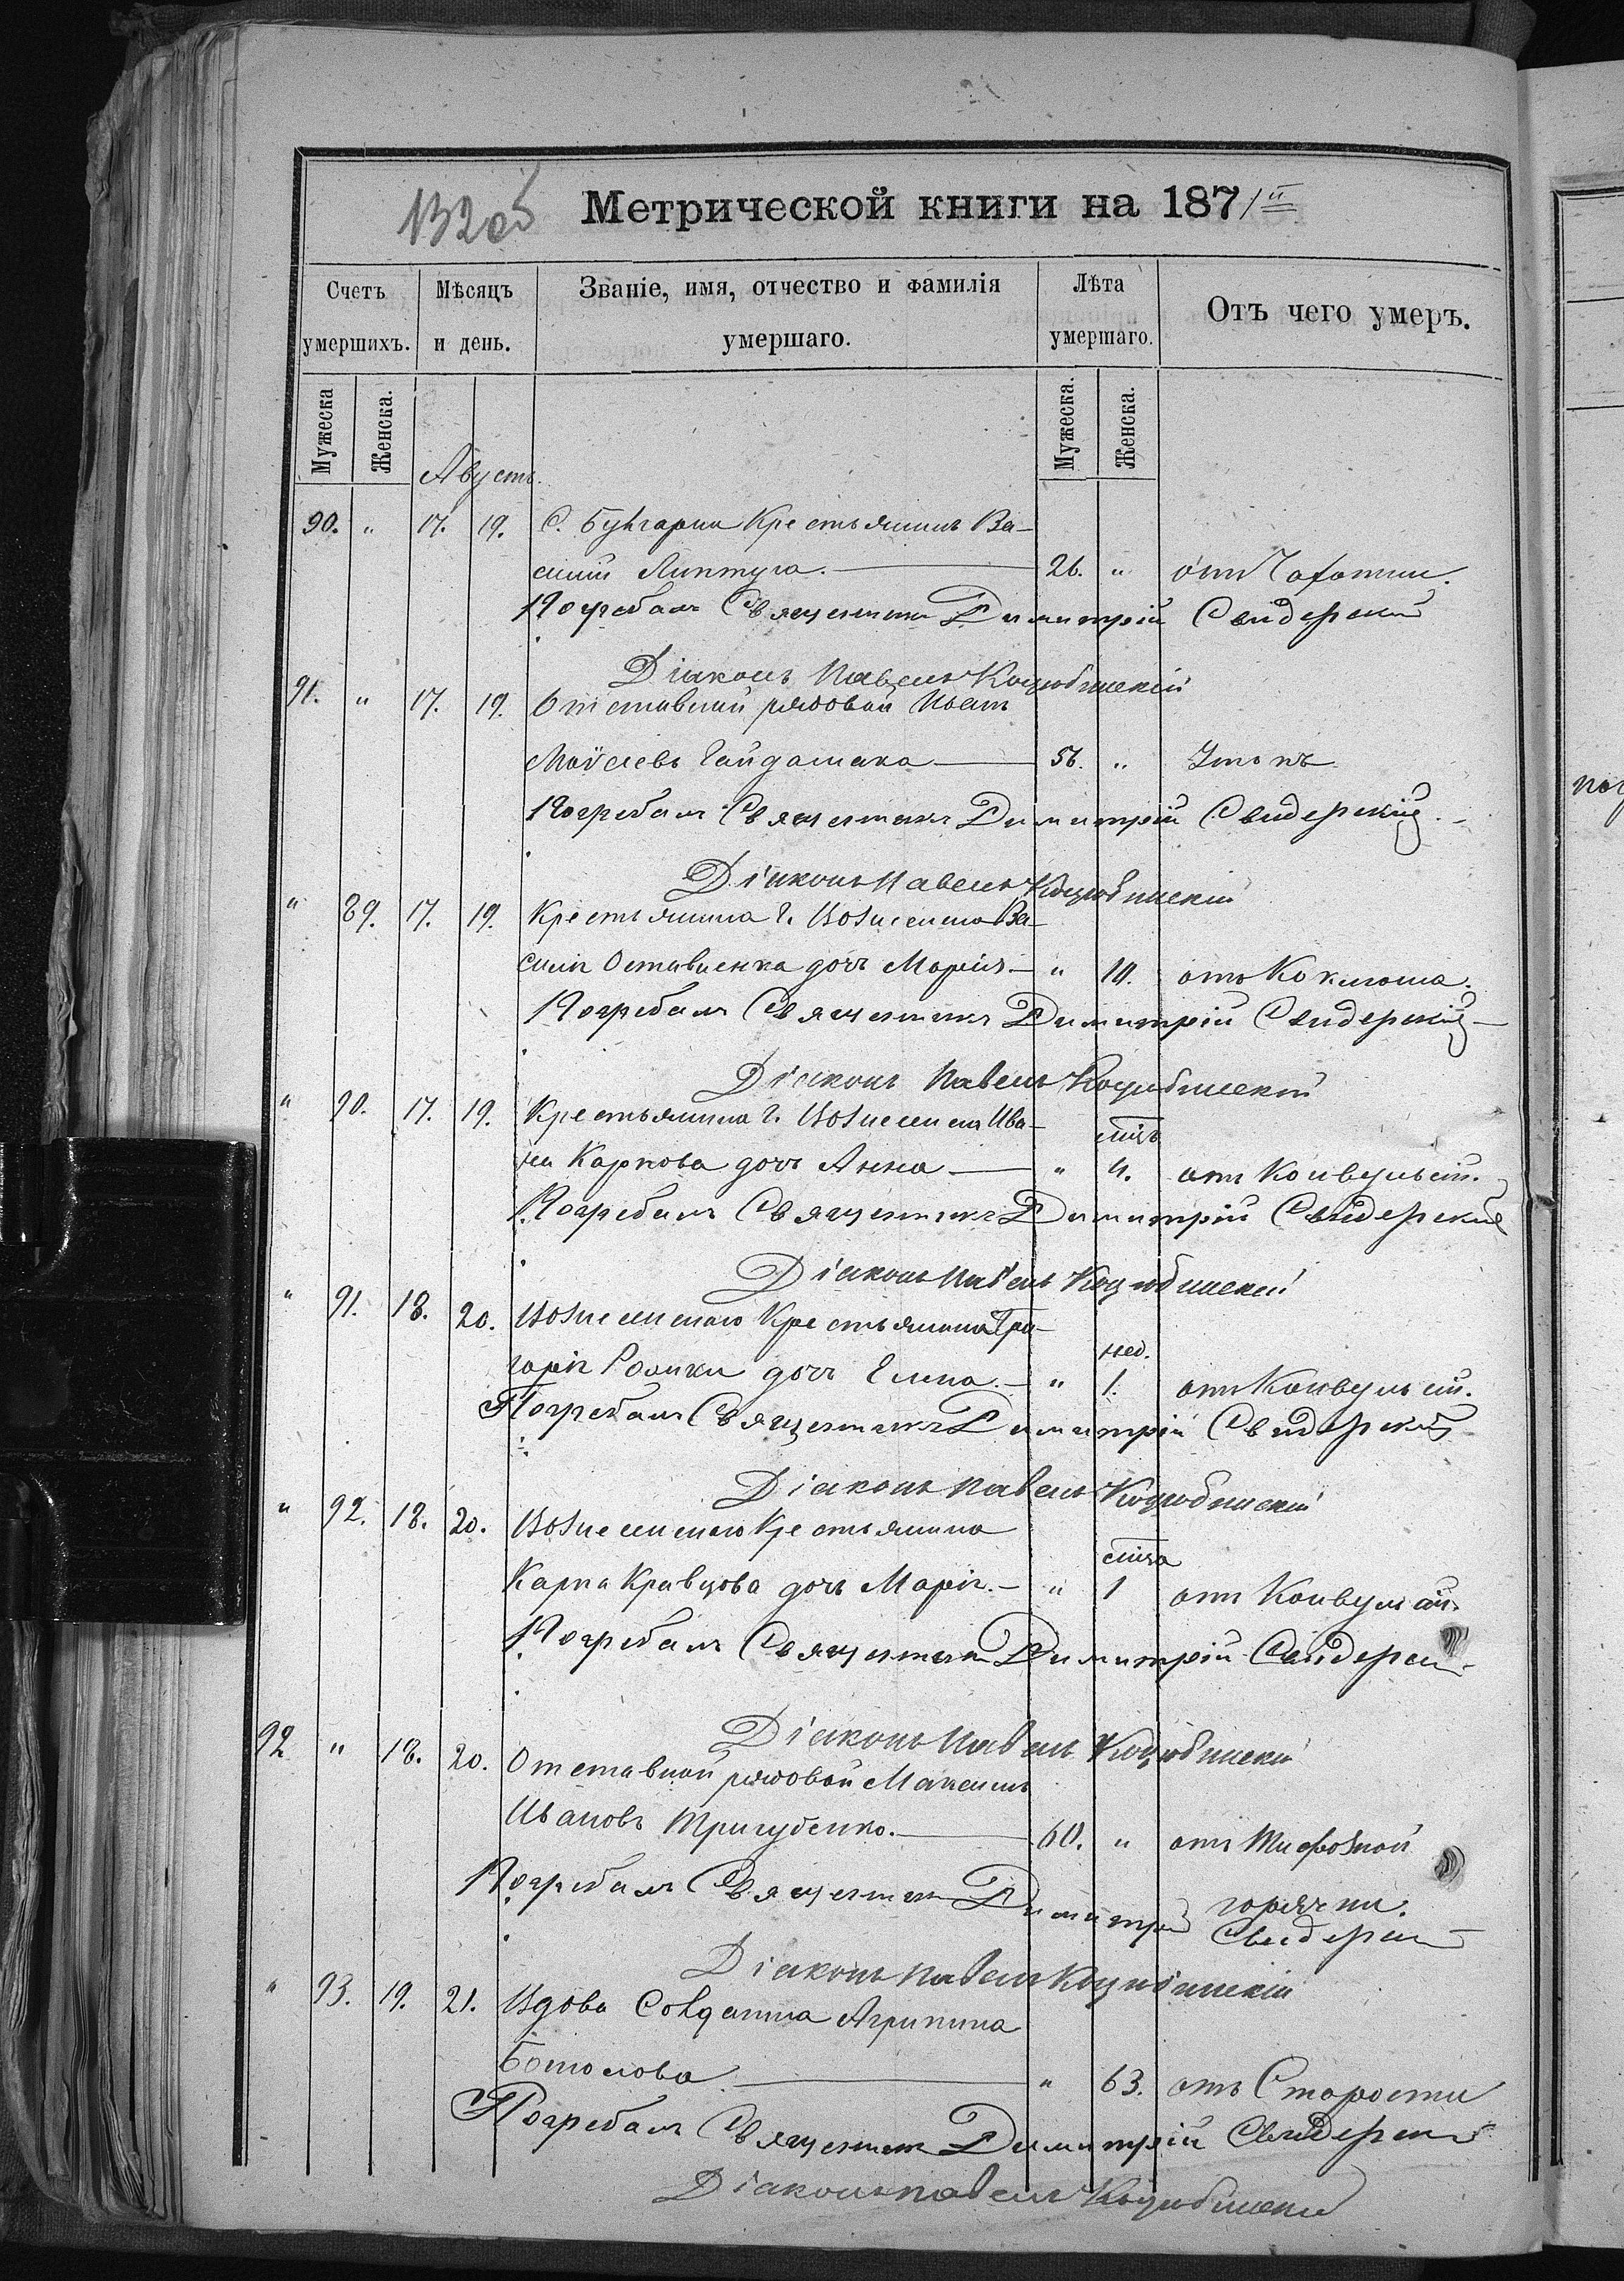 132об
Метрической книги на 1871й
Счетъ умершихъ.
Мѣсяцъ и день.
Званіе, имя, отчество и фамилія умершаго.
Лѣта умершаго.
Отъ чего умеръ.
Мужеска Женска. Мужеска. Женска.
Августъ.
90. " 17. 19. С. Булгарки Крестьянинъ Ва-
силій 26. " отъ Чахотки.
Погребалъ Священникъ Димитрій Свидерскій
Діаконъ Павелъ Коцюбинскій
91. " 17. 19. Отставный рядовой Игнатъ
Моѵсеевъ Гайдамака 56. " Утопъ
Погребалъ Священникъ Димитрій Свидерскій
Діаконъ Павелъ Коцюбинскій
" 89. 17. 19. Крестьянина г. Вознесенска Ва-
силія Оставненка дочь Марія " 10. отъ Коклюша.
Погребалъ Священникъ Димитрій Свидерскій
Діаконъ Павелъ Коцюбинскій
" 90. 17. 19. Крестьянина г. Вознесенска Ива-
на Карпова дочь Анна " мѣс. 4. отъ Конвульсій.
Погребалъ Священникъ Димитрій Свидерскій
Діаконъ Павелъ Коцюбинскій
" 91. 18. 20. Вознесенскаго Крестьянина Гри-
горія дочь Елена. " нед. 1. отъ Конвульсій.
Погребалъ Священникъ Димитрій Свидерскій
Діаконъ Павелъ Коцюбинскій
" 92. 18. 20. Вознесенскаго Крестьянина
Карпа Кравцова дочь Марія. " 1 отъ Конвульсій.
Погребалъ Священникъ Димитрій Свидерскій
Діаконъ Павелъ Коцюбинскій
92 " 18. 20. Отставной рядовой Максимъ
Ивановъ Тригубенко. 60. " отъ Тифозной
горячки.
Погребалъ Священникъ Димитрій Свидерскій
Діаконъ Павелъ Коцюбинскій
" 93. 19. 21. Вдова Солдатка Агрипина
" 63. отъ Старости
Погребалъ Священникъ Димитрій Свидерскій
Діаконъ Павелъ Коцюбинскій